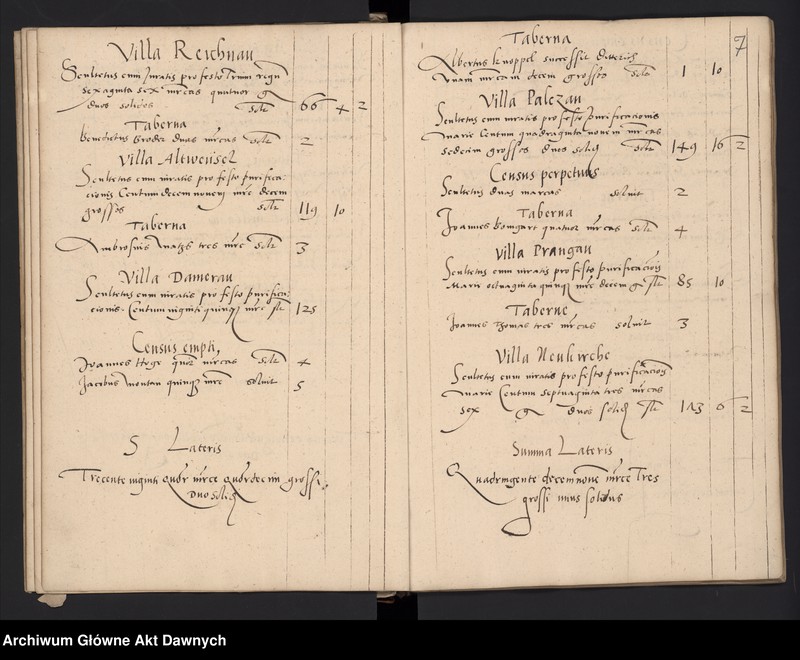 Villa Reichnau
Scultetus cum Juratis pro festo Trium regu
sexaginta sex mrcas quatuor g
duos solidos solt 66 4 2
Taberna
Benedictus duas mrcas solt 2
Villa Altwensel
Scultetus cum iuratis pro festo purifica:
cionis Centum decem novem mrc decem
grossos solt 119 10
Taberna
Ambrosius tres mrc solt 3
Villa Damerau
Scultetus cum iuratis pro festo purifica:
cionis Centum viginti quinq mrc slt 125
Census empti,
Joannes Hege quor mrcas solt 4
Jacobus Montau quinq mrc solvit 5
S Lateris
Trecente viginti quor mrce quordecim grossi,
Duo solid
7
Taberna
Albertus Knoppel successit
unam mrcam decem grossos solt 1 10
Villa Palczau
Scultetus cum iuratis pro festo purificacionis
Marie Centum quadraginta novem mrcas
sedecim grossos duos solid solt 149 16 2
Census perpetuus
Scultetus duas marcas solvit 2
Taberna
Joannes Bomgart quatuor mrcas solt 4
Villa Prangau
Scultetus cum iuratis pro festo purificacionis
Marie octuaginta quinq mrc decem g slt 85 10
Taberne
Joannes Thomas tres mrcas solvit 3
Villa Neukirche
Scultetus cum iuratis pro festo purificacionis
Marie Centum septuaginta tres mrcas
sex g duos solid slt 173 6 2
Summa Lateris
Quadringente decemnove mrce Tres
grossi unus solidus
Archiwum Główne Akt Dawnych